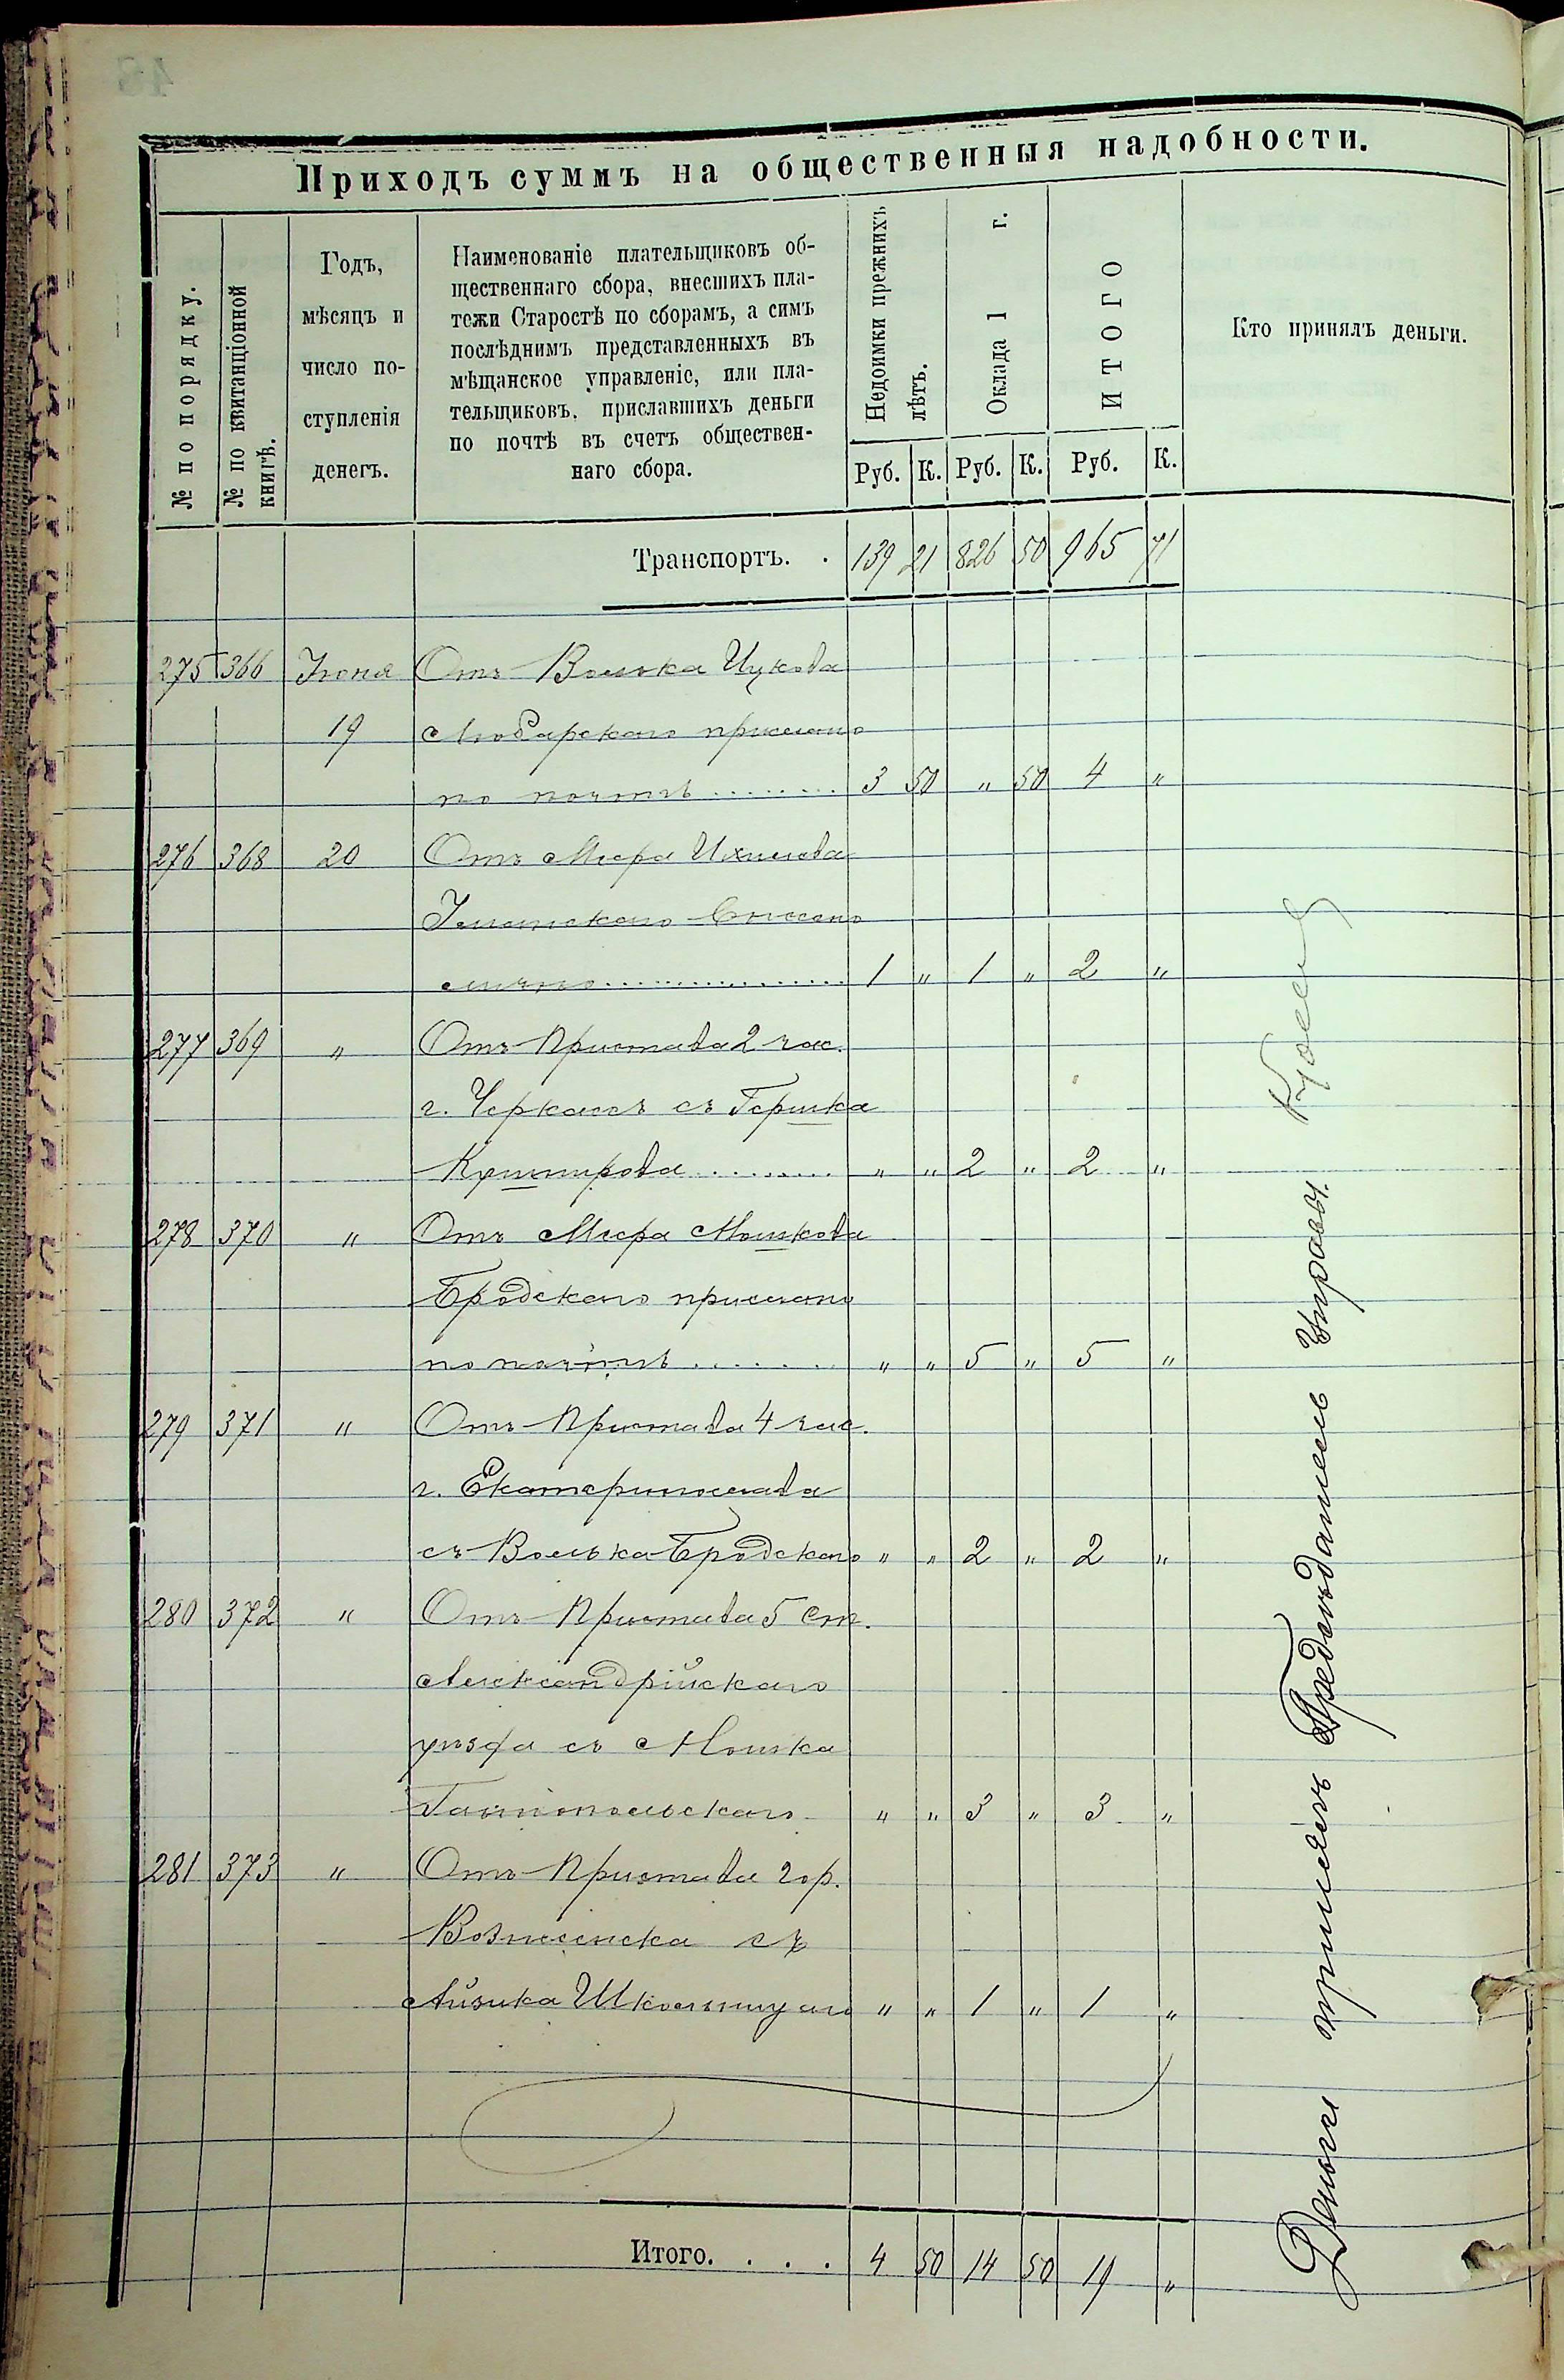 Приходъ суммъ на общественныя надобности.
№ по порядку.
№ по квитанціонной
книгѣ.
Годъ,
мѣсяцъ и
число по-
ступленія
денегъ.
Наименованіе плательщиковъ об-
щественнаго сбора, внесшихъ пла-
тежи Старостѣ по сборамъ, а симъ
послѣднимъ представленныхъ въ
мѣщанское управленіе, или пла-
тельщиковъ, приславшихъ деньги
по почтѣ въ счетъ обществен-
наго сбора.
Недоимки прежнихъ
лѣтъ.
Оклада 1 г.
ИТОГО
Кто принялъ деньги.
Руб. К. Руб. К. Руб. К.
Транспортъ. . 139 21 826 50 965 71
275 366 Іюня Отъ Волька Ицкова
19 Любарскаго прислано
по почтѣ ........ 3 50 " 50 4 "
276 368 20 Отъ Меера Ихилева
Уманскаго внесено
лично ........ 1 " 1 " 2 "
277 369 " Отъ Пристава 2 час.
г. Черкассъ съ Гершка
Кушнирова ........ " " 2 " 2 "
278 370 " Отъ Меера Мошкова
Бродскаго прислано
по почтѣ ........ " " 5 " 5 "
279 371 " Отъ Пристава 4 час.
г. Екатеринослава
съ Волька Бродскаго " " 2 " 2 "
280 372 " Отъ Пристава 5 ст.
Александрійскаго
уѣзда съ Мошка
Гайнопольскаго " " 3 " 3 "
281 373 " Отъ Пристава гор.
Вознесенска съ
Айзика Школьницаго " " 1 " 1 "
Итого. . . . 4 50 14 50 19 "
Деньги принялъ Предсѣдатель Управы.